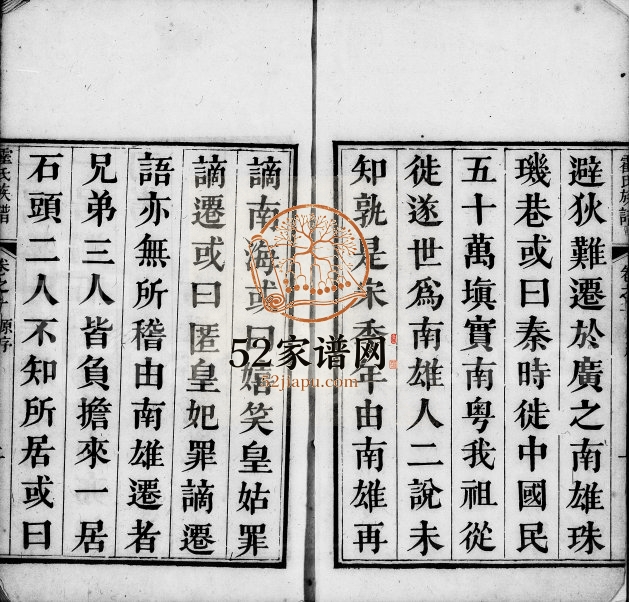 避狄難遷於廣之南雄珠
璣巷或曰秦時徙中國民
五十萬塡實南粤我祖從
徙遂世爲南雄人二說未
知孰是宋季年由南雄再
謫南海或曰嬉笑皇姑罪
謫遷或曰匿皇妃罪謫遷
語亦無所稽由南雄遷者
兄弟三人皆負擔來一居
石頭二人不知所居或曰
霍氏族譜 卷之 原序
52家谱网
52jiapu.com